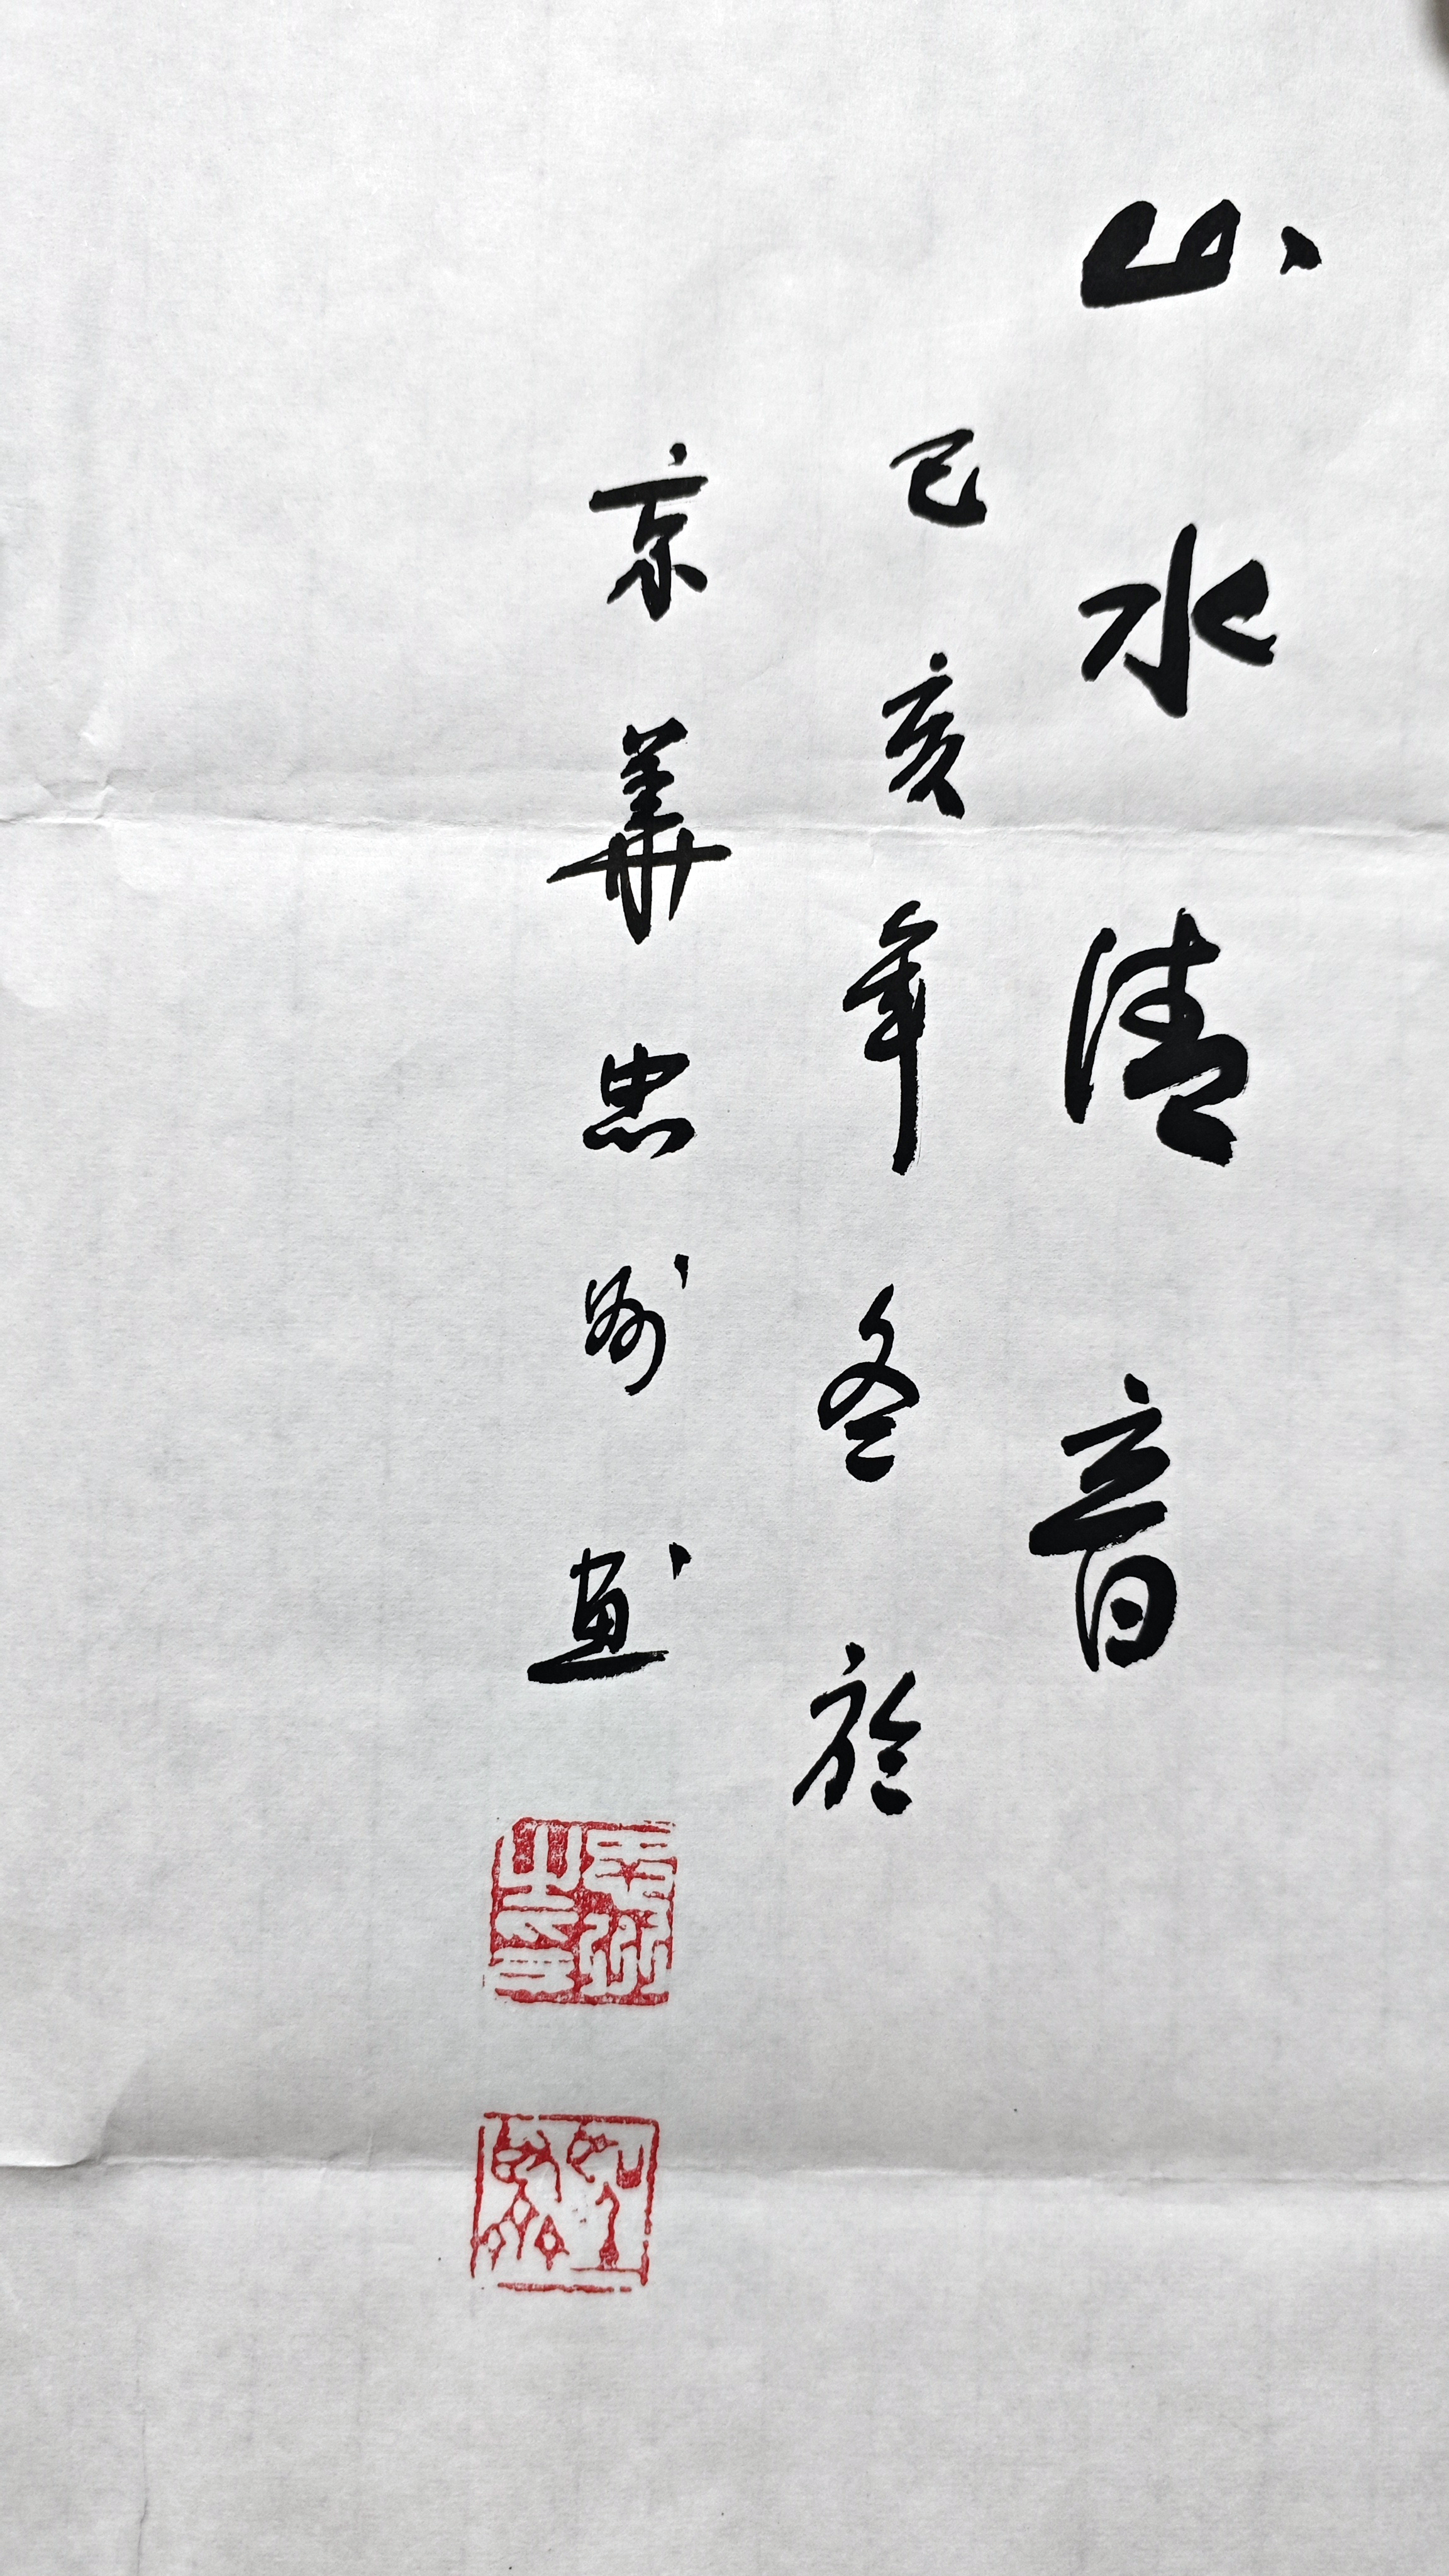 山水清音
己亥年冬於
京華忠州畫